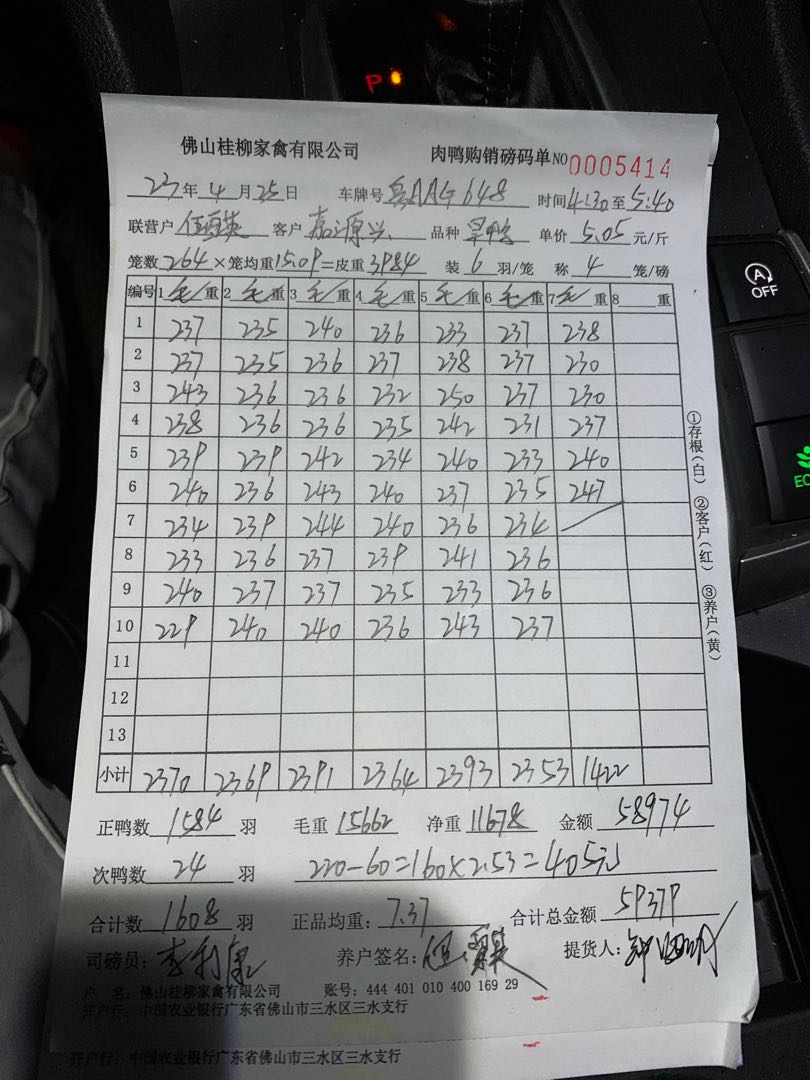 P
佛山桂柳家禽有限公司 肉鸭购销磅码单 NO 0005414
23年4月25日 车牌号 AA4648 时间 4:30 至 5:40
联营户 伍 客户 嘉源兴 品种 旱鸭 单价 5.05 元/斤
笼数 264 × 笼均重 15.09 = 皮重 3984 装 6 羽/笼 称 4 笼/磅
编号 1 毛/重 2 毛/重 3 毛/重 4 毛/重 5 毛/重 6 毛/重 7 毛 重 8 重
1 237 235 240 236 233 237 238
2 237 235 236 237 238 237 230
3 243 236 236 232 250 237 230
4 238 236 236 235 242 231 237
5 239 239 242 234 240 233 240
6 240 236 243 240 237 235 247
7 234 239 244 240 236 234
8 233 236 237 239 241 236
9 240 237 237 235 233 236
10 229 240 240 236 243 237
11
12
13
小计 2370 2369 2391 2364 2393 2353 1422
正鸭数 1584 羽 毛重 15662 净重 11678 金额 58974
次鸭数 24 羽 220-60=160×2.53=405元
合计数 1608 羽 正品均重: 7.37 合计总金额 59379
司磅员: 李利 养户签名: 伍 提货人:
户 名: 佛山桂柳家禽有限公司 账号: 444 401 010 400 169 29
开户行: 中国农业银行广东省佛山市三水区三水支行
开户行: 中国农业银行广东省佛山市三水区三水支行
①存根(白) ②客户(红) ③养户(黄)
A
OFF